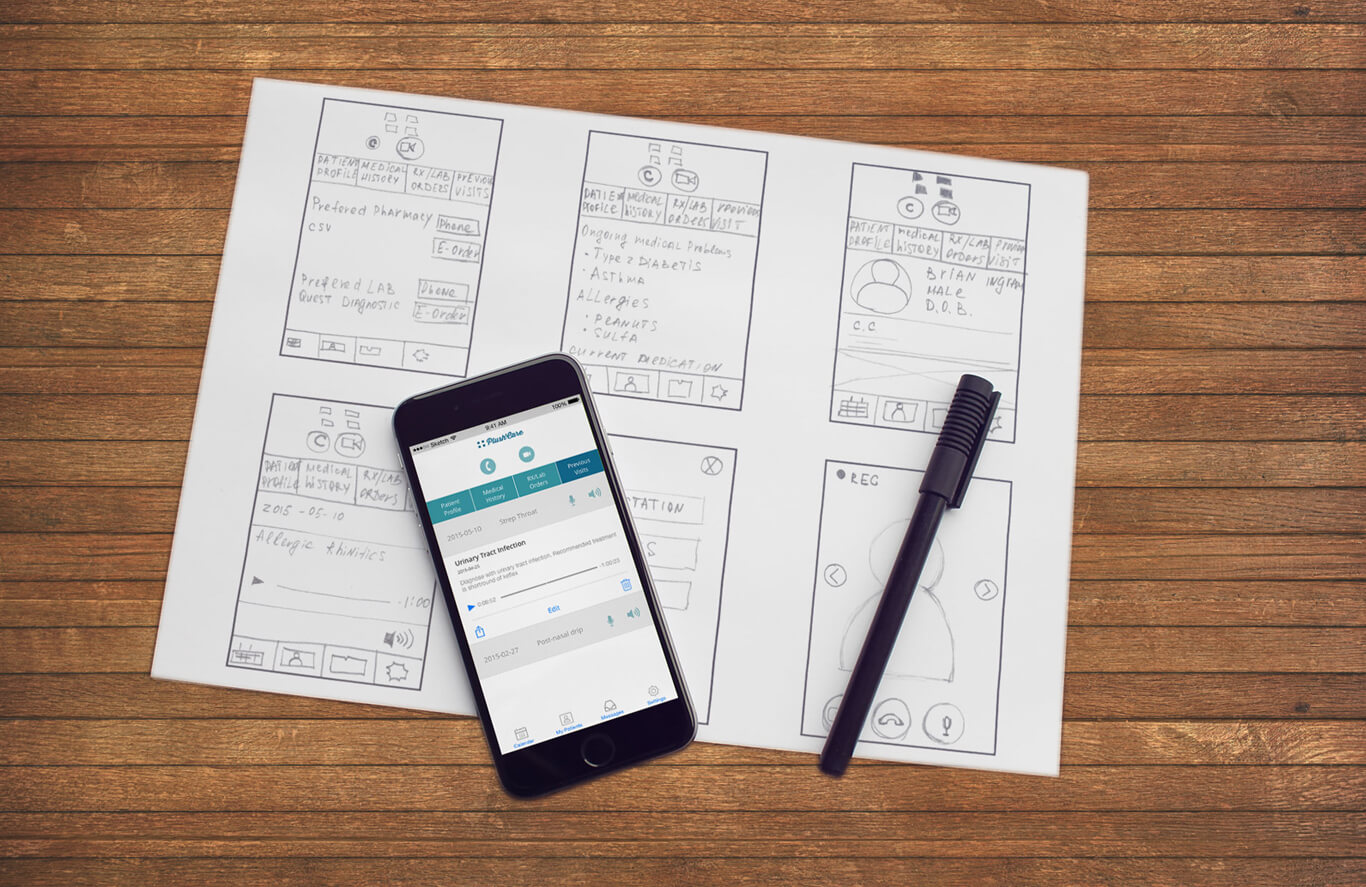 PATIENT PROFILE
MEDICAL HISTORY
RX/LAB ORDERS
PREVIOUS VISITS
Prefered Pharmacy
Phone
CSV
E-Order
Prefered LAB
Phone
Quest Diagnostic
E-Order
C
PATIE
PROFILE
medical
History
RX/LAB
ORDERS
PREVIOUS
VISIT
Ongoing medical Problems
• Type 2 DIABETIS
• Asthma
Allergies
• PEANUTS
• SULFA
CURRENT MEDICATION
C
PATIENT
PROFILE
medical
HISTORY
RX/LAB
ORDERS
VISIT
BRIAN INGRAM
MALE
D.O.B.
C.C
C
PATIE
PROFILE
Medical
HISTORY
RX/LAB
ORDERS
2015-05-10
Allergic Rhinitics
-1:00
Sketch
9:41 AM
100%
PlushCare
Patient
Profile
Medical
History
RX/Lab
Orders
Previous
Visits
2015-05-10 Strep Throat
Urinary Tract Infection
Diagnose with urinary tract infection. Recommended treatment
is shortround of keflex
0:00:52
-1:00:03
Edit
2015-02-27 Post-nasal drip
Calendar
My Patients
Messages
Settings
X
TATION
S
REC